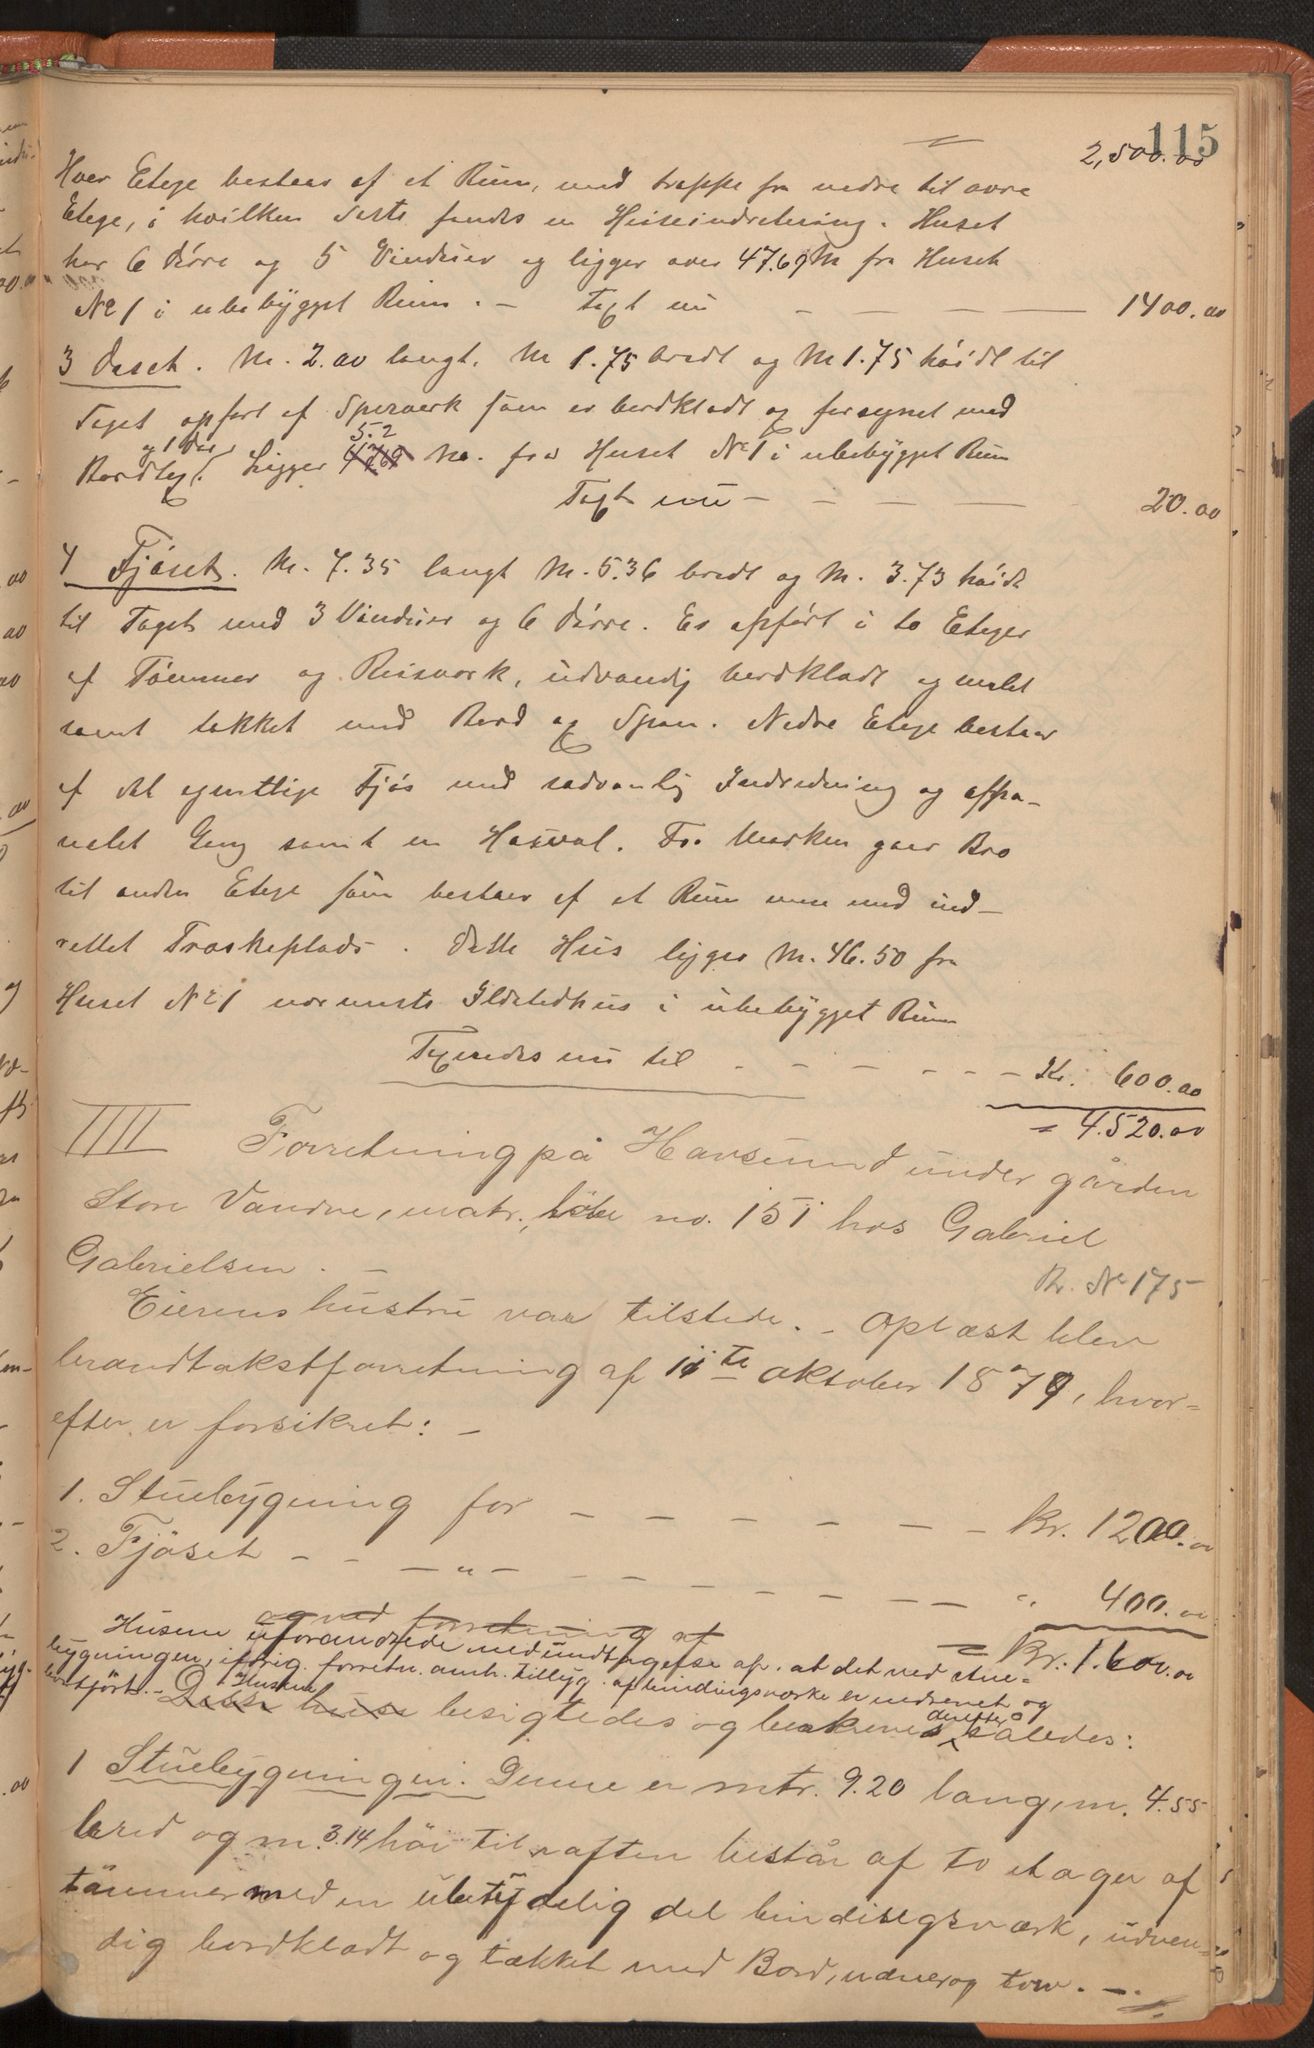 115
2,500.00
Hver Etage bestaar af et Rum, med trappe fra nedre til øvre
Etage, i hvilken sidste fandes en Heiseindretning. Huset
har 6 Døre og 5 Vinduer og ligger over 47.69 M fra Huset
No 1 i ubebygget Rum. — Taxt nu — — — — 1400.00
3 Doset. M. 2.00 langt. M 1.75 bredt og M 1.75 høidt til
Taget opført af Sperverk som er bordklædt og forsynet med
og 1 Dør 5.2
Bordtag. Ligger 47.69 M. fra Huset No 1 i ubebygget Rum
Taxt nu — — — — 20.00
4 Fjøset. M. 7.35 langt M. 5.36 bredt og M. 3.73 høidt
til Taget med 3 Vinduer og 6 Døre. Er opført i to Etager
af Tømmer og Reisverk, udvendig bordklædt og malet
samt tækket med Bord og Spon. Nedre Etage bestaar
af det egentlige Fjøs med sædvanlig Indredning og afpa-
nelet Gang samt en Høsval. Fra Marken gaar Bro
til anden Etage som bestaar af et Rum men med ind-
rettet Træskeplads. Dette Hus ligger M. 46.50 fra
Huset No 1 nærmeste Ildstedhus i ubebygget Rum
Taxeredes nu til — — — — — — Kr. 600.00
= 4.520.00
IIII Forretning på Havsund under gården
Store Vandve, matr. løbe no. 151 hos Gabriel
Gabrielsen. —
Br. No 175
Eierens hustru var tilstede. — Oplæst blev
brandtakstforretning af 11te oktober 1879, hvor-
efter er forsikret: —
1. Stuebygning for — — — — — — — Kr. 1200.00
2. Fjöset — — — " — — — — — — " 400.00
og ved forretning af
Husene uforandrede med undtagelse af at det ved stue-
= Kr. 1.600.00
bygningen, ifølg. forretn. anh. tilbyg. af bindingsværke er nedrevet og
bortført. — Husene
Disse huse besigtedes og beskrives derefter således:
1 Stuebygningen. Denne er mtr. 9.20 lang, m. 4.55
bred og m 3.14 høi til raften består af to etager af
tömmer med en ubetydelig del bindisegsværk, udven-
dig bordklædt og tækket med Bord, næver og torv. —